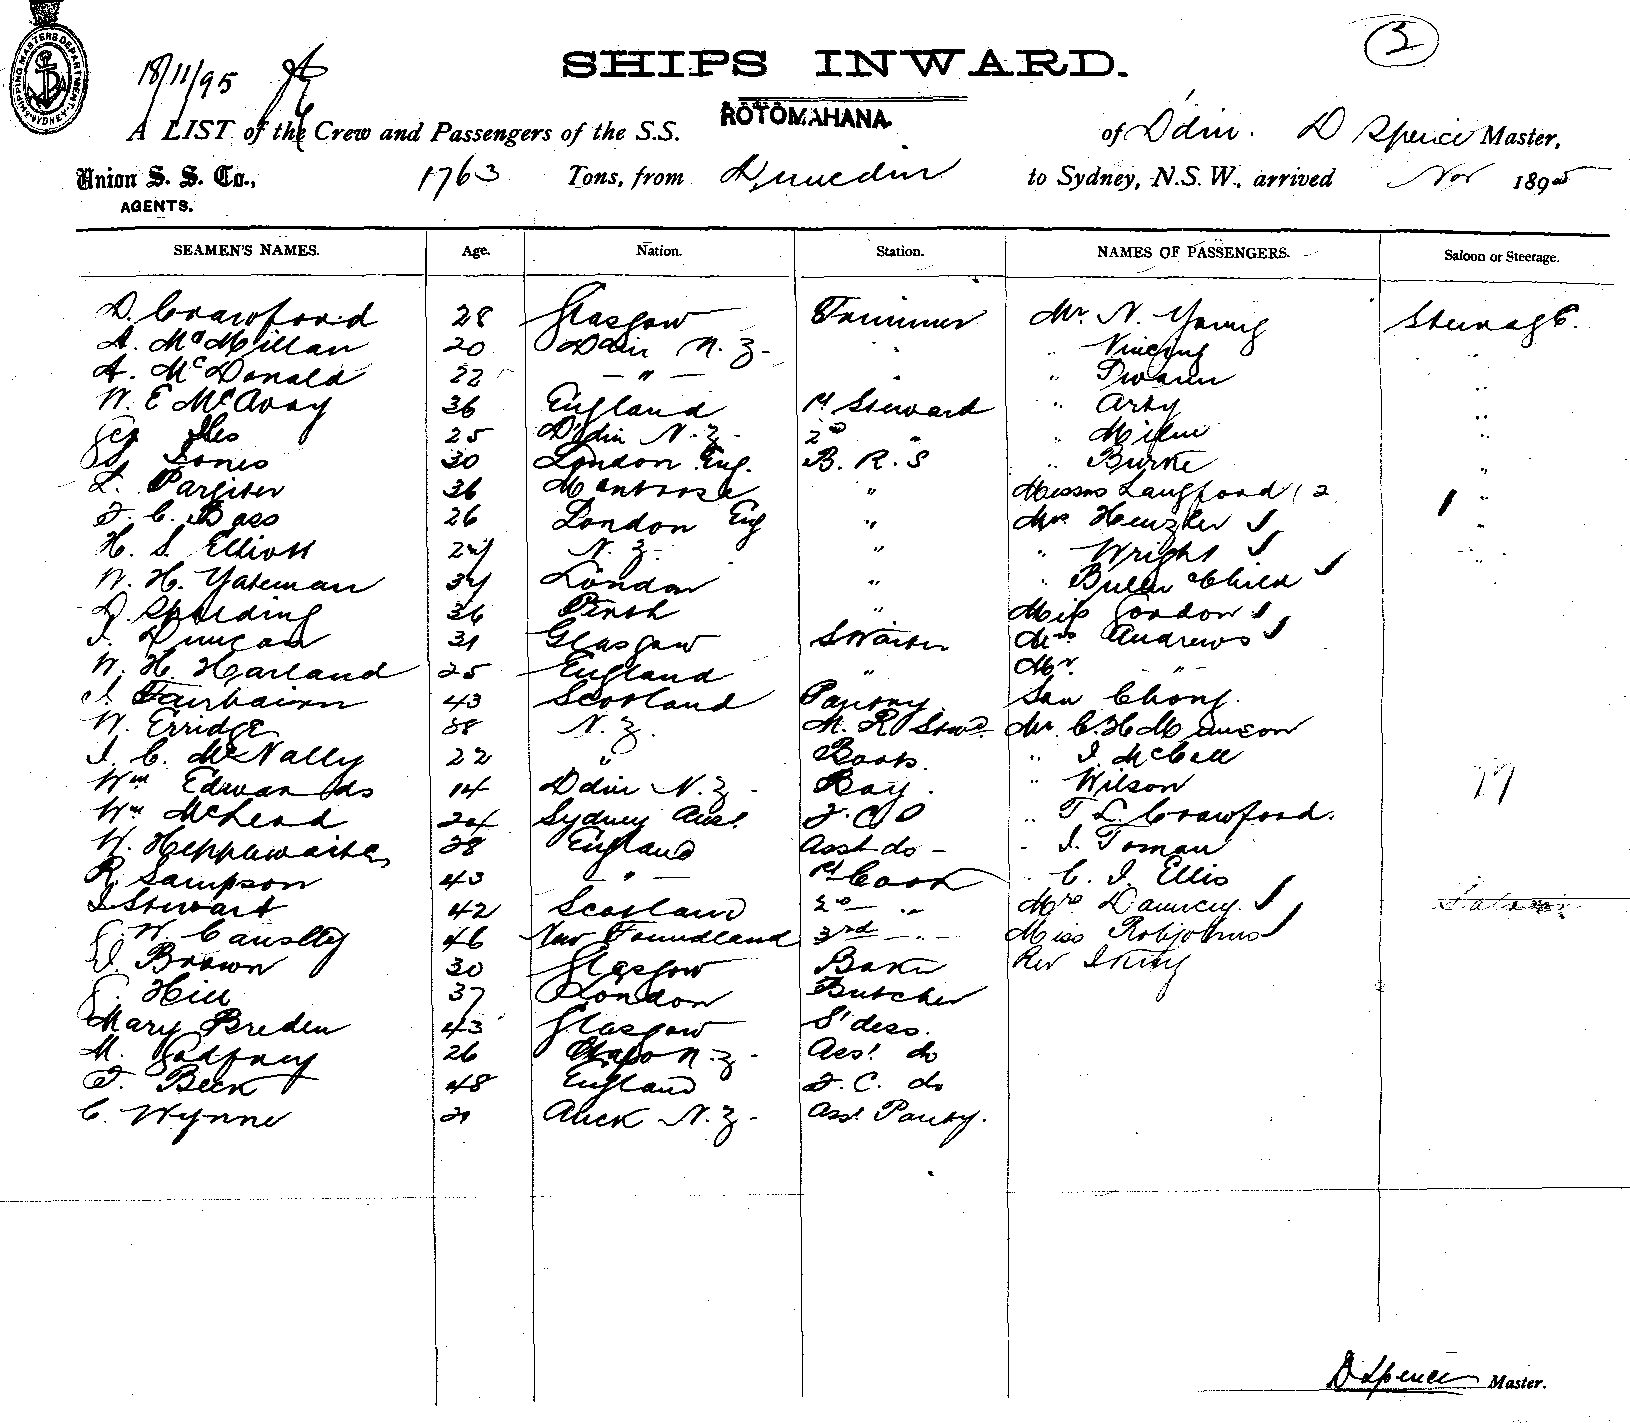 SHIPPING MASTERS DEPARTMENT SYDNEY
5
18/11/95
SHIPS INWARD.
A LIST of the Crew and Passengers of the S.S. ROTOMAHANA. of D'din. D Spence Master,
Union S. S. Co., 1763 Tons, from Dunedin to Sydney, N.S.W., arrived Nov 1895
AGENTS.
SEAMEN'S NAMES. Age. Nation. Station. NAMES OF PASSENGERS. Saloon or Steerage.
D. Crawford 28 Glasgow Trimmer Mr. N. Young Steerage.
A. McMillan 20 Ddin N.Z. " " Vincent "
A. McDonald 22 — " — " " Swann "
W. E McAvoy 36 England 1st Steward " Arty "
Iles 25 D'din N.Z. 2nd " " Milne "
Jones 30 London Eng. B. R. S " Burke "
L. Pargiter 36 Montrose " Messrs Langford (2 "
F. C. Bass 26 London Eng " Mrs Henzler "
H. S. Elliott 24 N.Z. " " Wright "
W. H. Yateman 34 London " " Buller & Child
D. Spalding 36 Perth " Miss Gordon
J. Duncan 31 Glasgow S Waiter Mrs Andrews
W. H. Harland 25 England " Mr. "
J. Fairbairn 43 Scotland Pantry Chong.
W. Erridge 38 N.Z. M. R. Stwd. Mr. C. H. Manson
J. C. McNally 22 " Boots. " J. McCall
Wm Edwards 14 Ddin N.Z. Boy. " Wilson
Wm McLeod 24 Sydney Aust. F.C " T L Crawford.
W. Heppawaite 38 England Asst do - " J. Toman
R. Sampson 43 — " — 1st Cook " C. J. Ellis
J Stewart 42 Scotland 2nd " Mrs Dauncey. Saloon
J. W. Canslley 46 New Foundland 3rd — " — Miss Robjohns
D. Brown 30 Glasgow Baker Rev J King
J. Hill 37 London Butcher
Mary Breden 43 Glasgow St'dess.
M. Godfrey 26 Otago N.Z. Ass't. do
F. Beck 48 England F. C. do
C. Wynne 21 Auck N.Z. Asst Pantry.
D Spence Master.